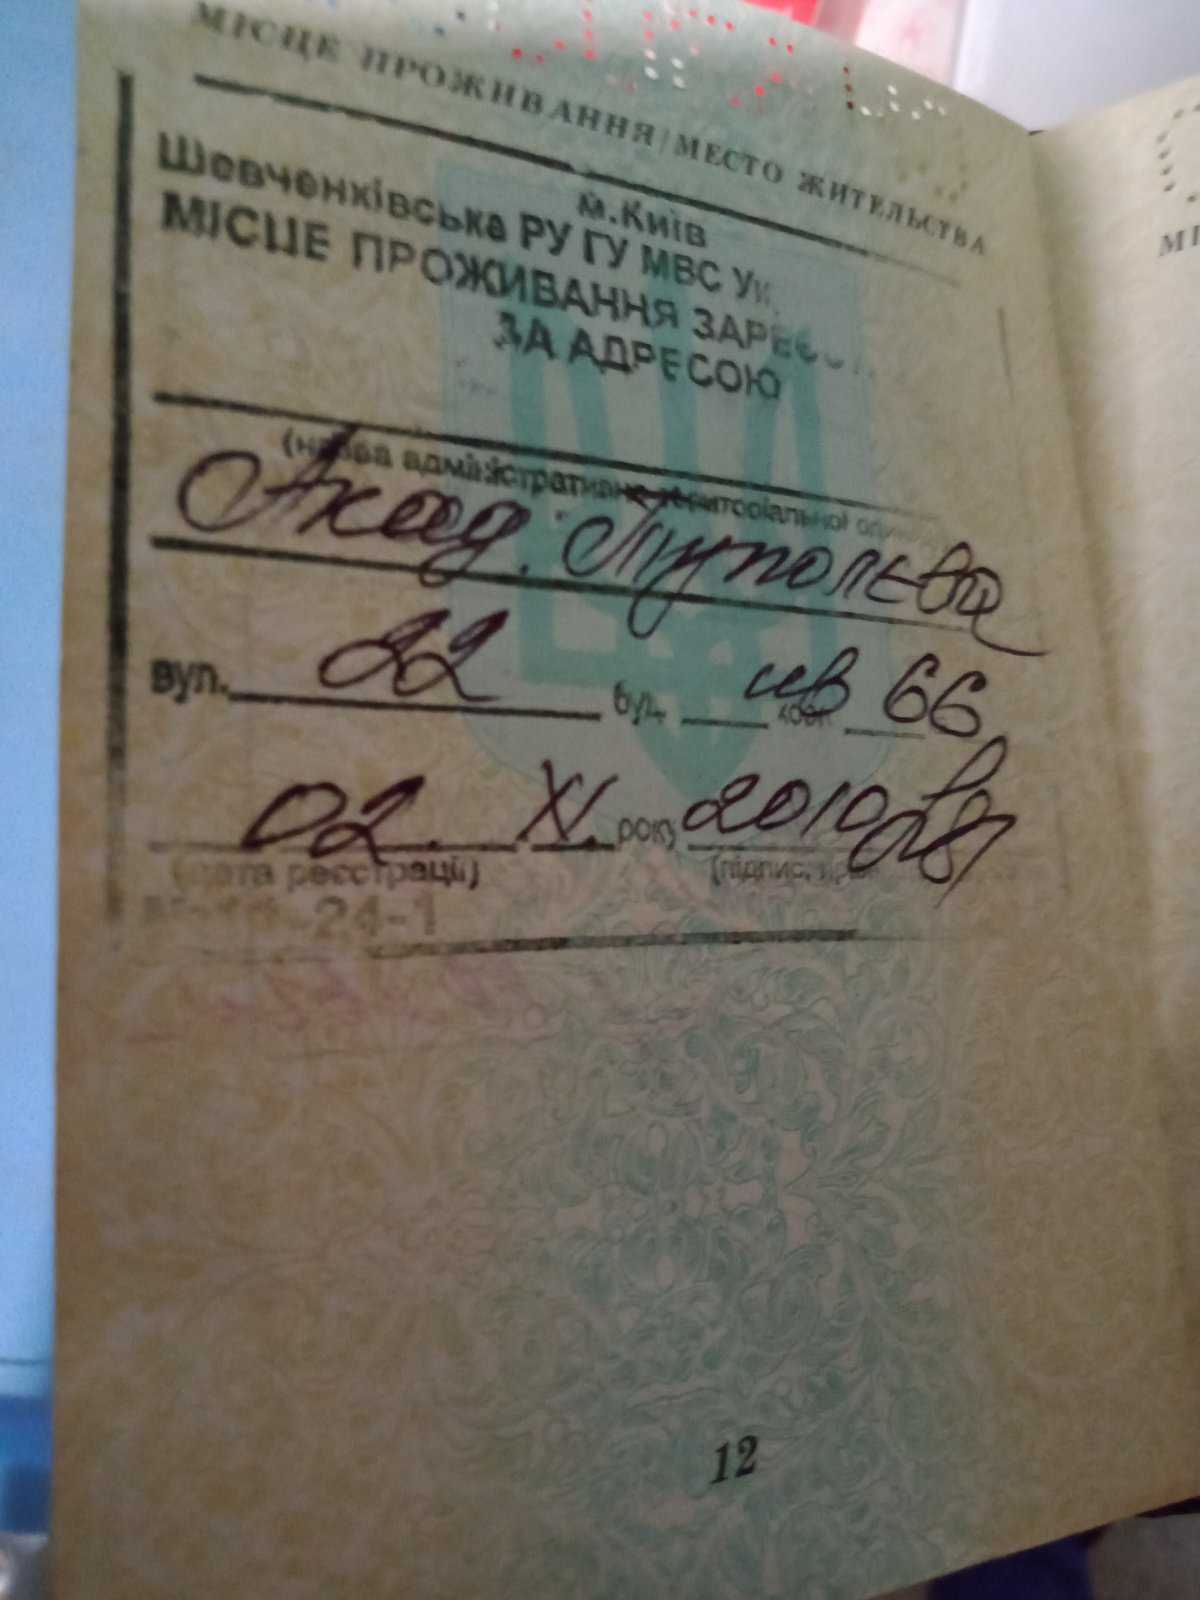 МІСЦЕ ПРОЖИВАННЯ/МЕСТО ЖИТЕЛЬСТВА
м.Київ
Шевченківська РУ ГУ МВС
МІСЦЕ ПРОЖИВАННЯ
ЗА АДРЕСОЮ
(назва адміністративно
Акад. Туполєва
вул. 22 буд. кв 66
02. XI. року 2010
(дата реєстрації) (підпис,
24-1
12